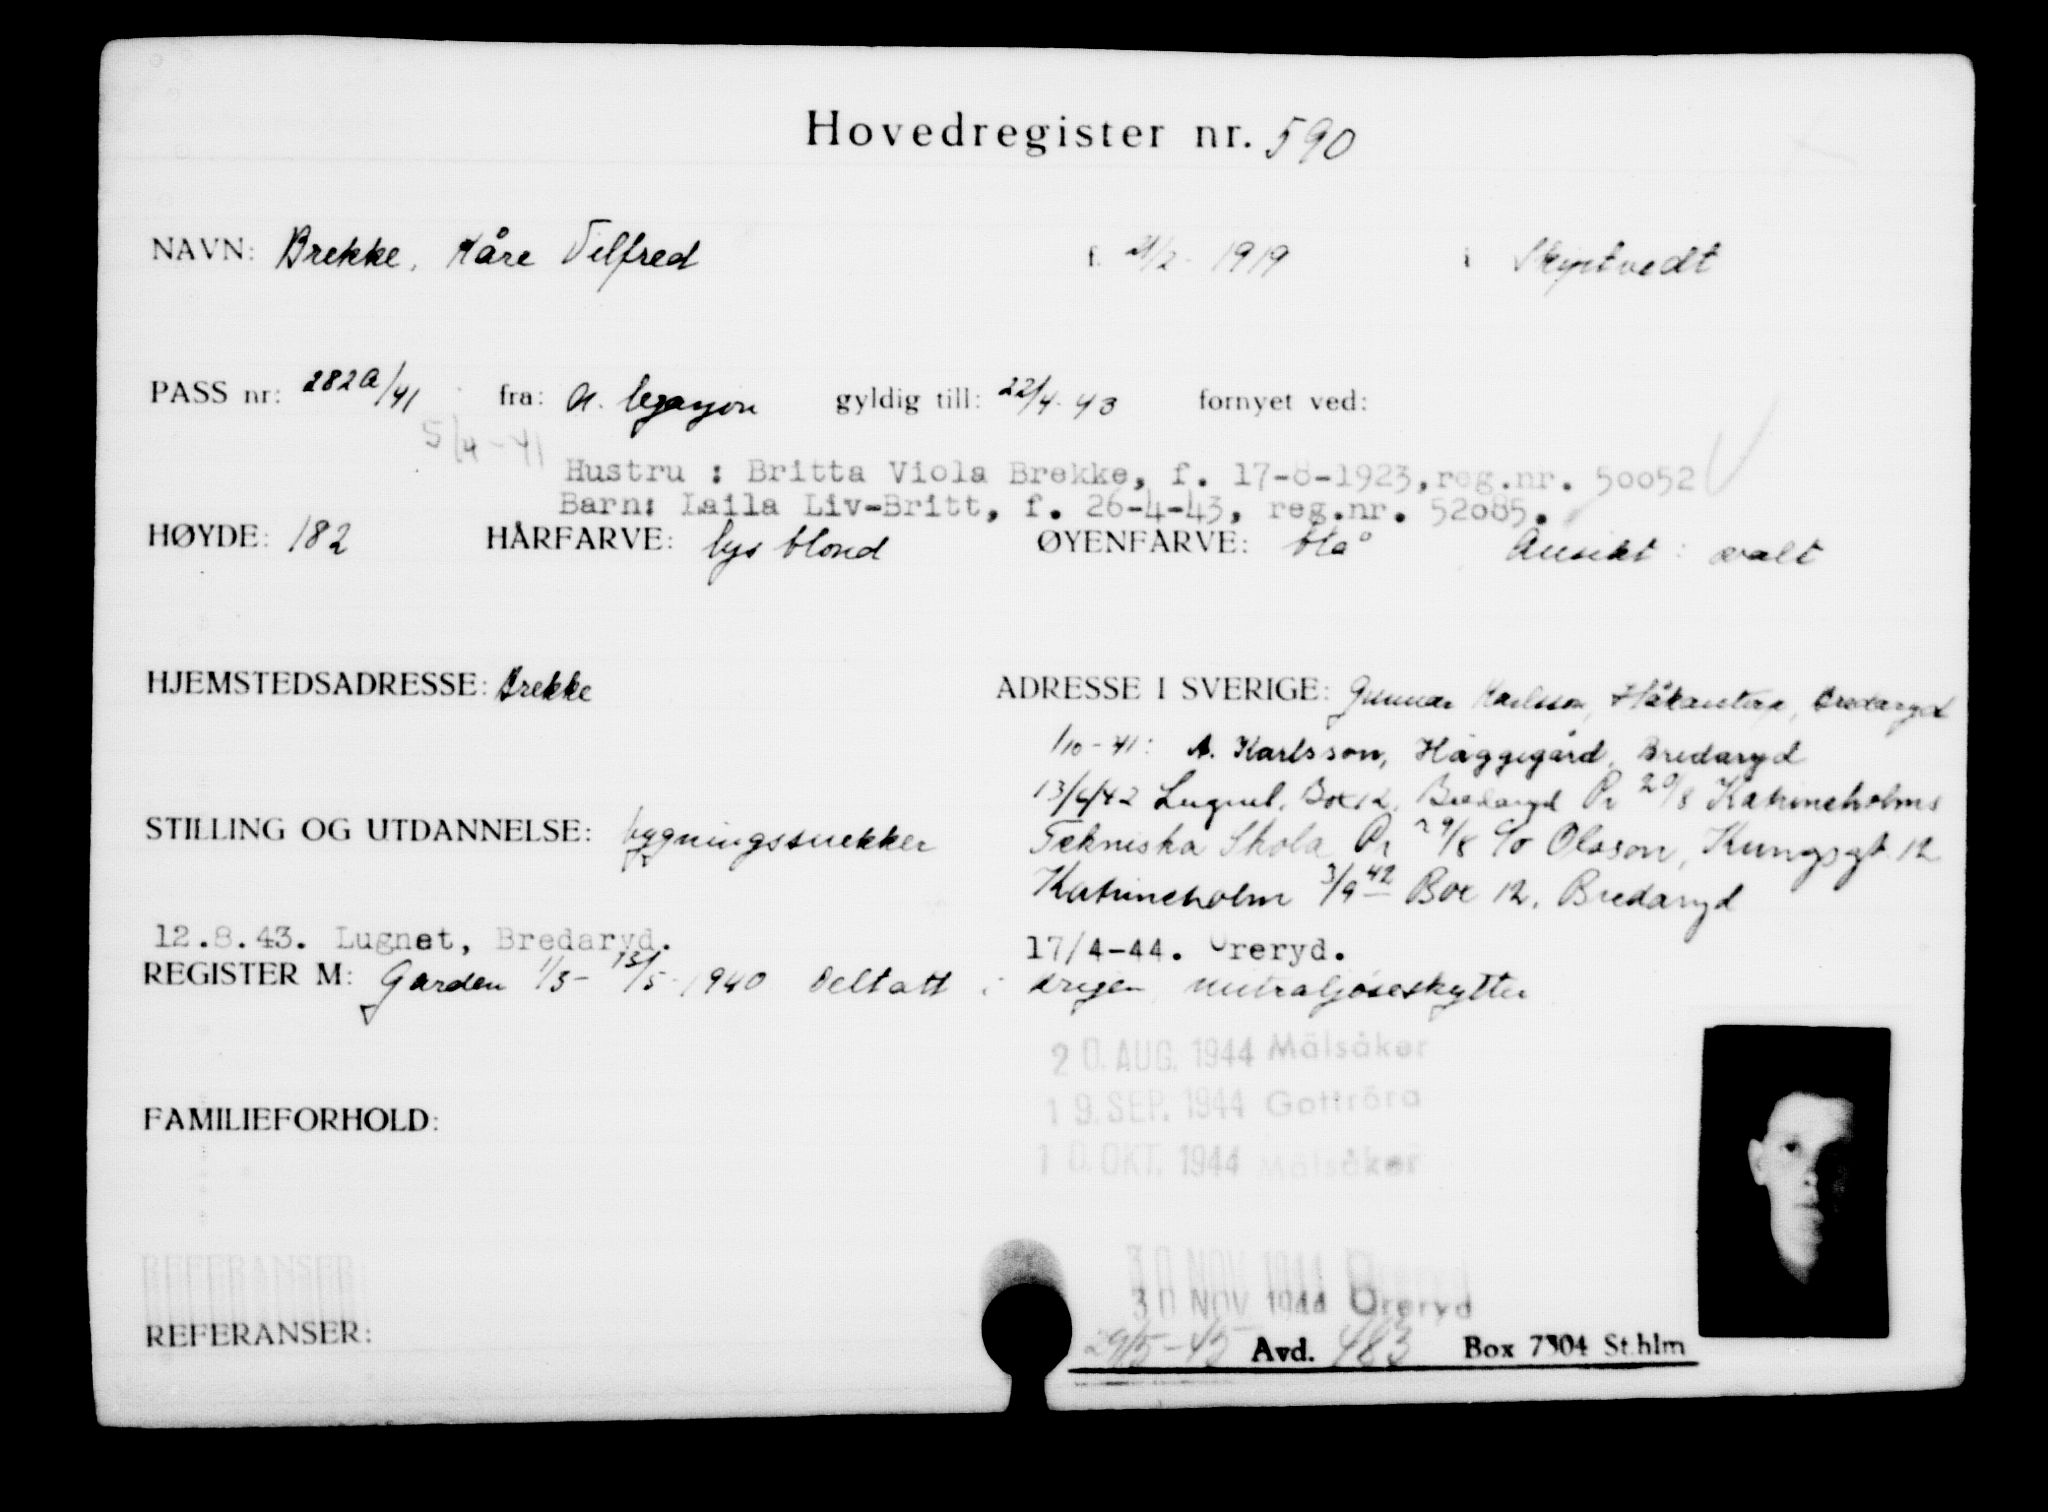 Hovedregister nr. 590
NAVN: Brekke, Kåre Vilfred f. 21/2 - 1919 i Skiptvedt
PASS nr: 282a/41 fra: N. legasjon gyldig till: 22/4-43 fornyet ved:
5/4-41
Hustru : Britta Viola Brekke, f. 17-8-1923, reg.nr. 50052
Barn: Laila Liv-Britt, f. 26-4-43, reg.nr. 52085.
HØYDE: 182 HÅRFARVE: lys blond ØYENFARVE: blå Ansikt: ovalt
HJEMSTEDSADRESSE: Brekke ADRESSE I SVERIGE: Gunnar Karlsson, Bredaryd
1/10-41: A. Karlsson, Häggegård, Bredaryd
13/6/42 Lugnet, Box 12, Bredaryd Pr 20/8 Katrineholms
STILLING OG UTDANNELSE: bygningssnekker Tekniska Skola Pr 29/8 c/o Olsson, Kungsgt 12
Katrineholm 3/9 42 Box 12, Bredaryd
12.8.43. Lugnet, Bredaryd. 17/4-44. Öreryd.
REGISTER M: Garden 1/3 - 13/5 - 1940 Deltatt i krigen mitraljøseskytter
20. AUG. 1944 Mälsåker
19. SEP. 1944 Gottröra
FAMILIEFORHOLD:
10. OKT. 1944 Mälsåker
REFERANSER
30 NOV 1944 Öreryd
30 NOV 1944 Öreryd
REFERANSER:
29/5-45 Avd. 483 Box 7304 St.hlm